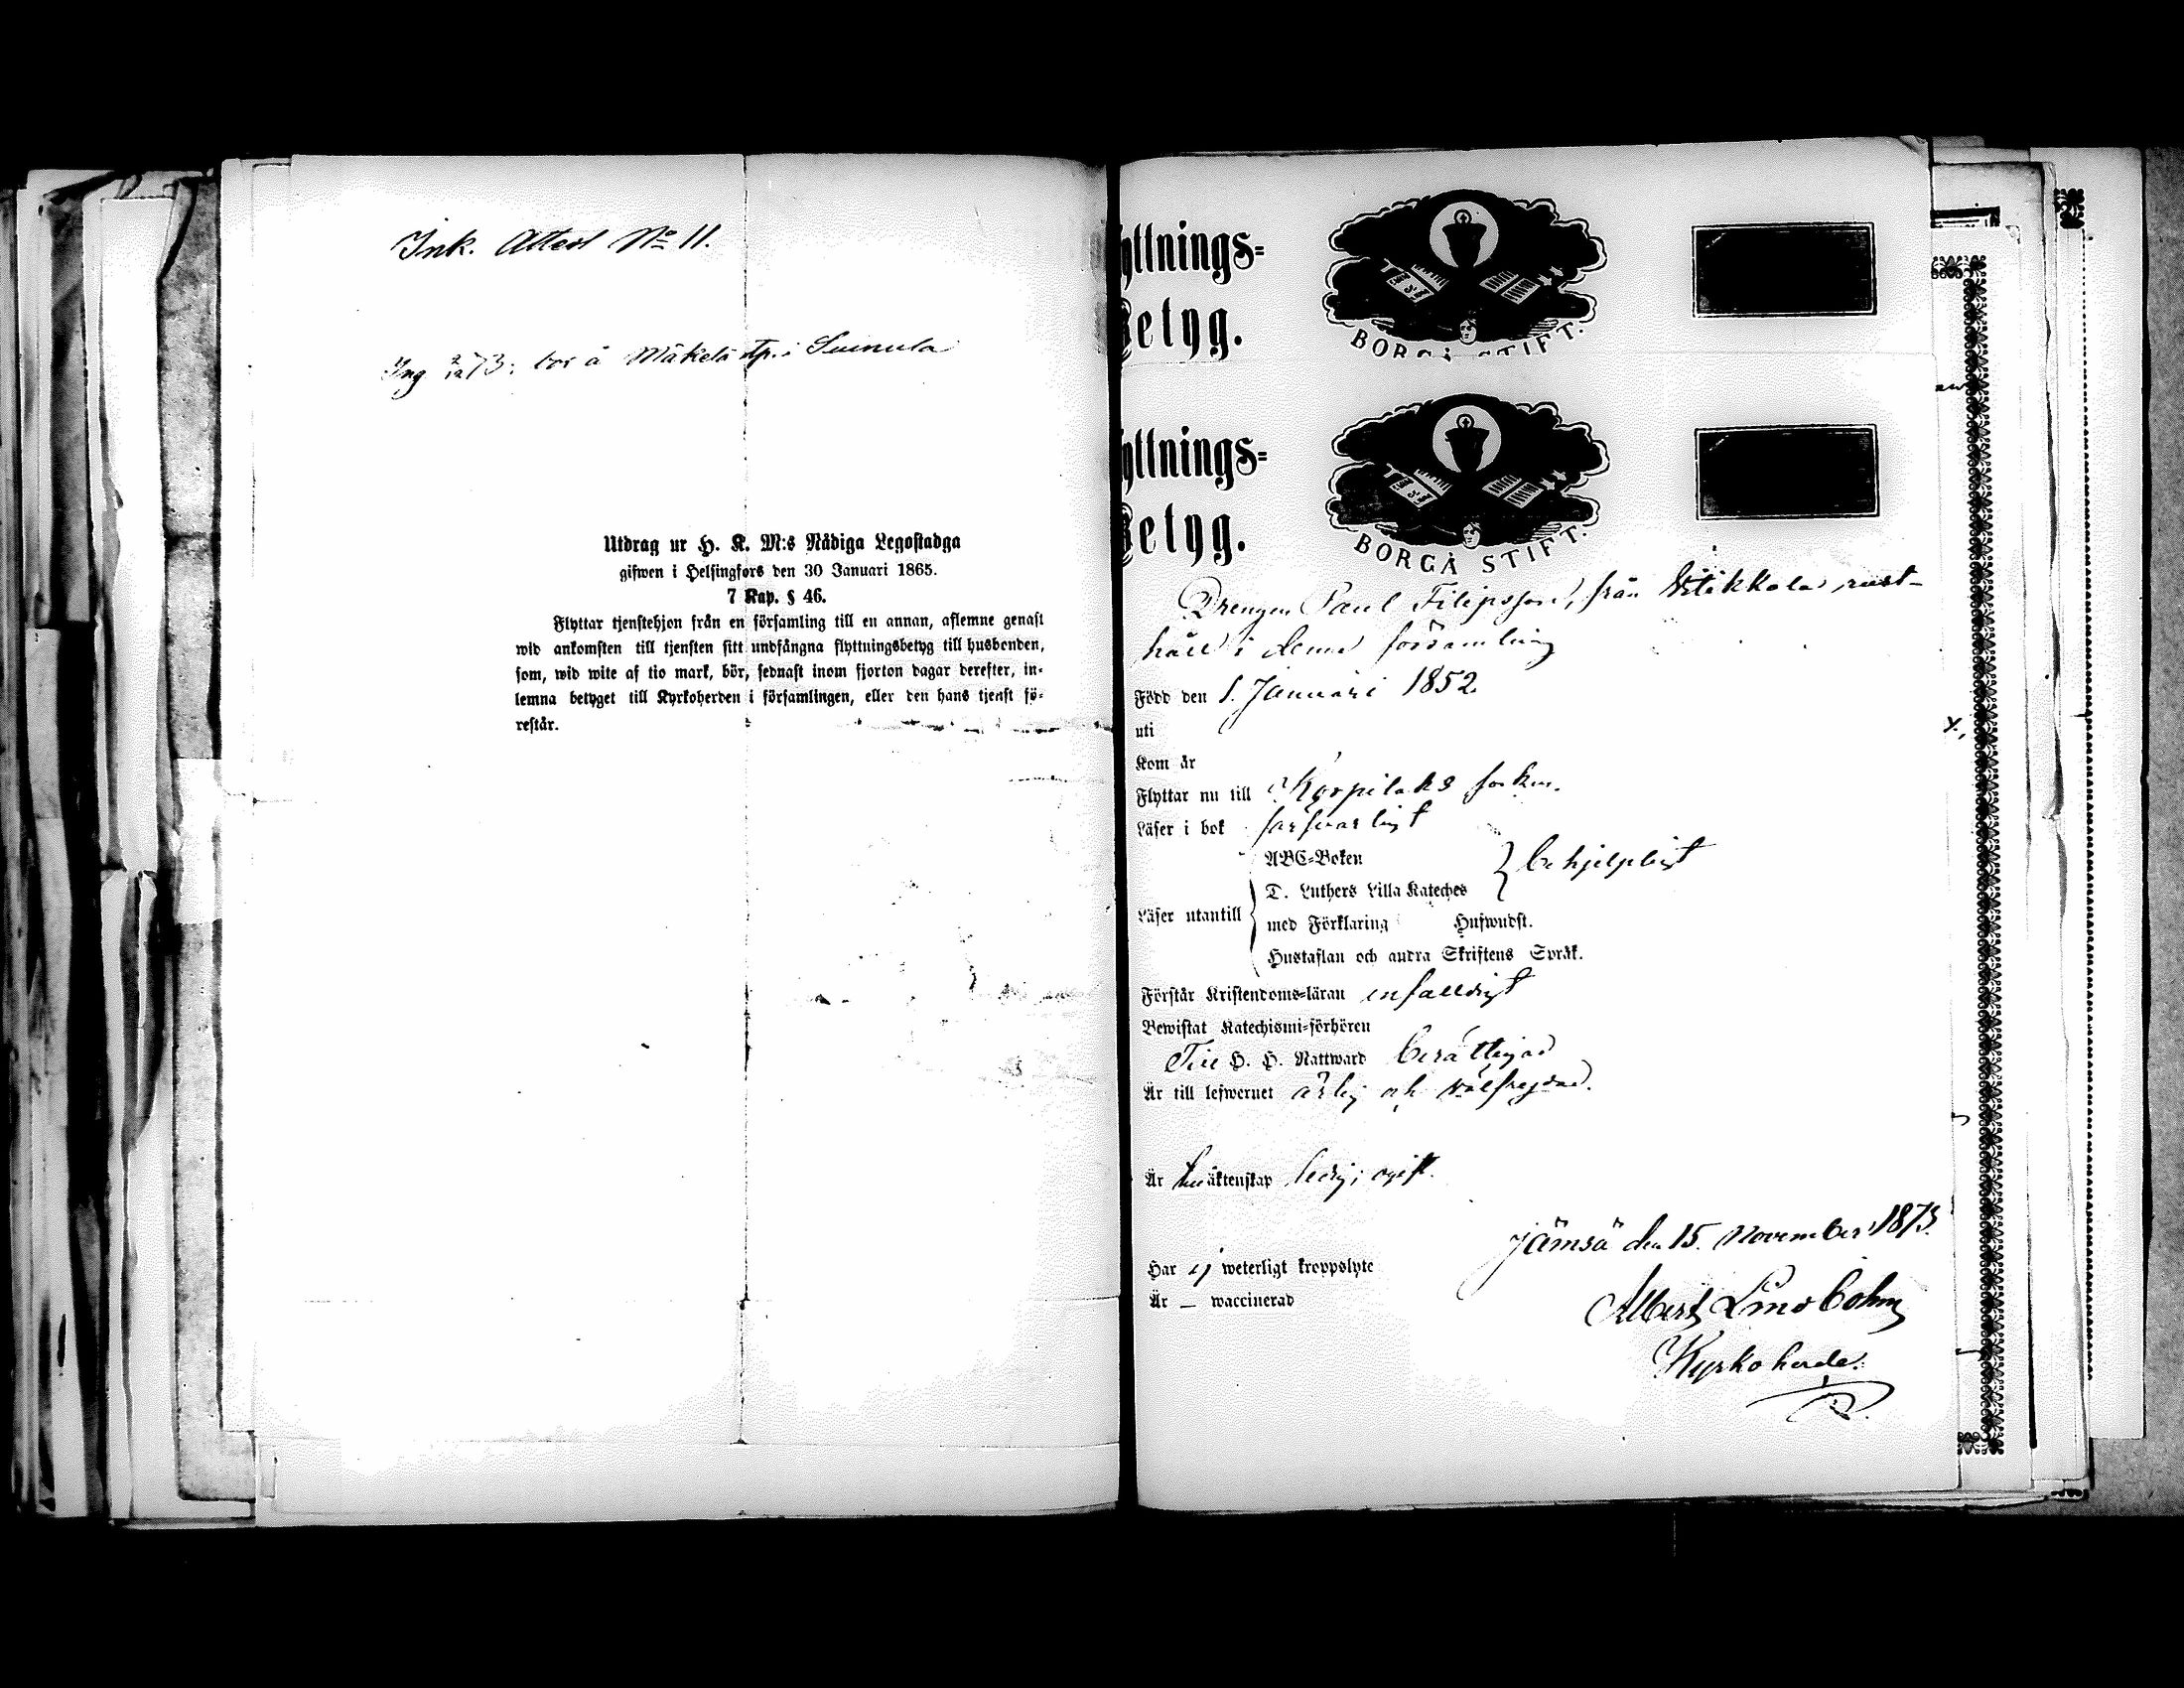 Ink. Attest No 11.
Ing 2/12 73; bor å Mäkelä tp. i
Utdrag ur H. K. M:s Nådiga Legostadga
gifwen i Helsingfors den 30 Januari 1865.
7 Kap. § 46.
Flyttar tjenstehjon från en församling till en annan, aflemne genast
wid ankomsten till tjensten sitt undfångna flyttningsbetyg till husbonden,
som, wid wite af tio mark, bör, sednast inom fjorton dagar derefter, in-
lemna betyget till Kyrkoherden i församlingen, eller den hans tjenst fö-
restår.
yttnings-
Betyg.
BORGÅ STIFT.
yttnings-
Betyg.
BORGÅ STIFT.
Drengen Paul Filipsson, från Witikkala rust-
håll i denna församling
Född den 1. Januari 1852.
uti
Kom år
Flyttar nu till Korpilaks socken.
Läser i bok försvarligt
ABC-Boken
} behjelpligt
D. Luthers Lilla Kateches
Läser utantill
med Förklaring Hufwudst.
Hustaflan och andra Skriftens Språk.
Förstår Kristendoms-läran enfalldigt
Bewistat Katechismi-förhören
Till H. H. Nattward berättigad
Är till lefwernet ärlig och välfrejdad.
Är till äktenskap ledig; ogift.
Jämsä den 15. November 1873.
Har ej weterligt kroppslyte
Är — waccinerad
Albert Lindbohm
Kyrkoherde.